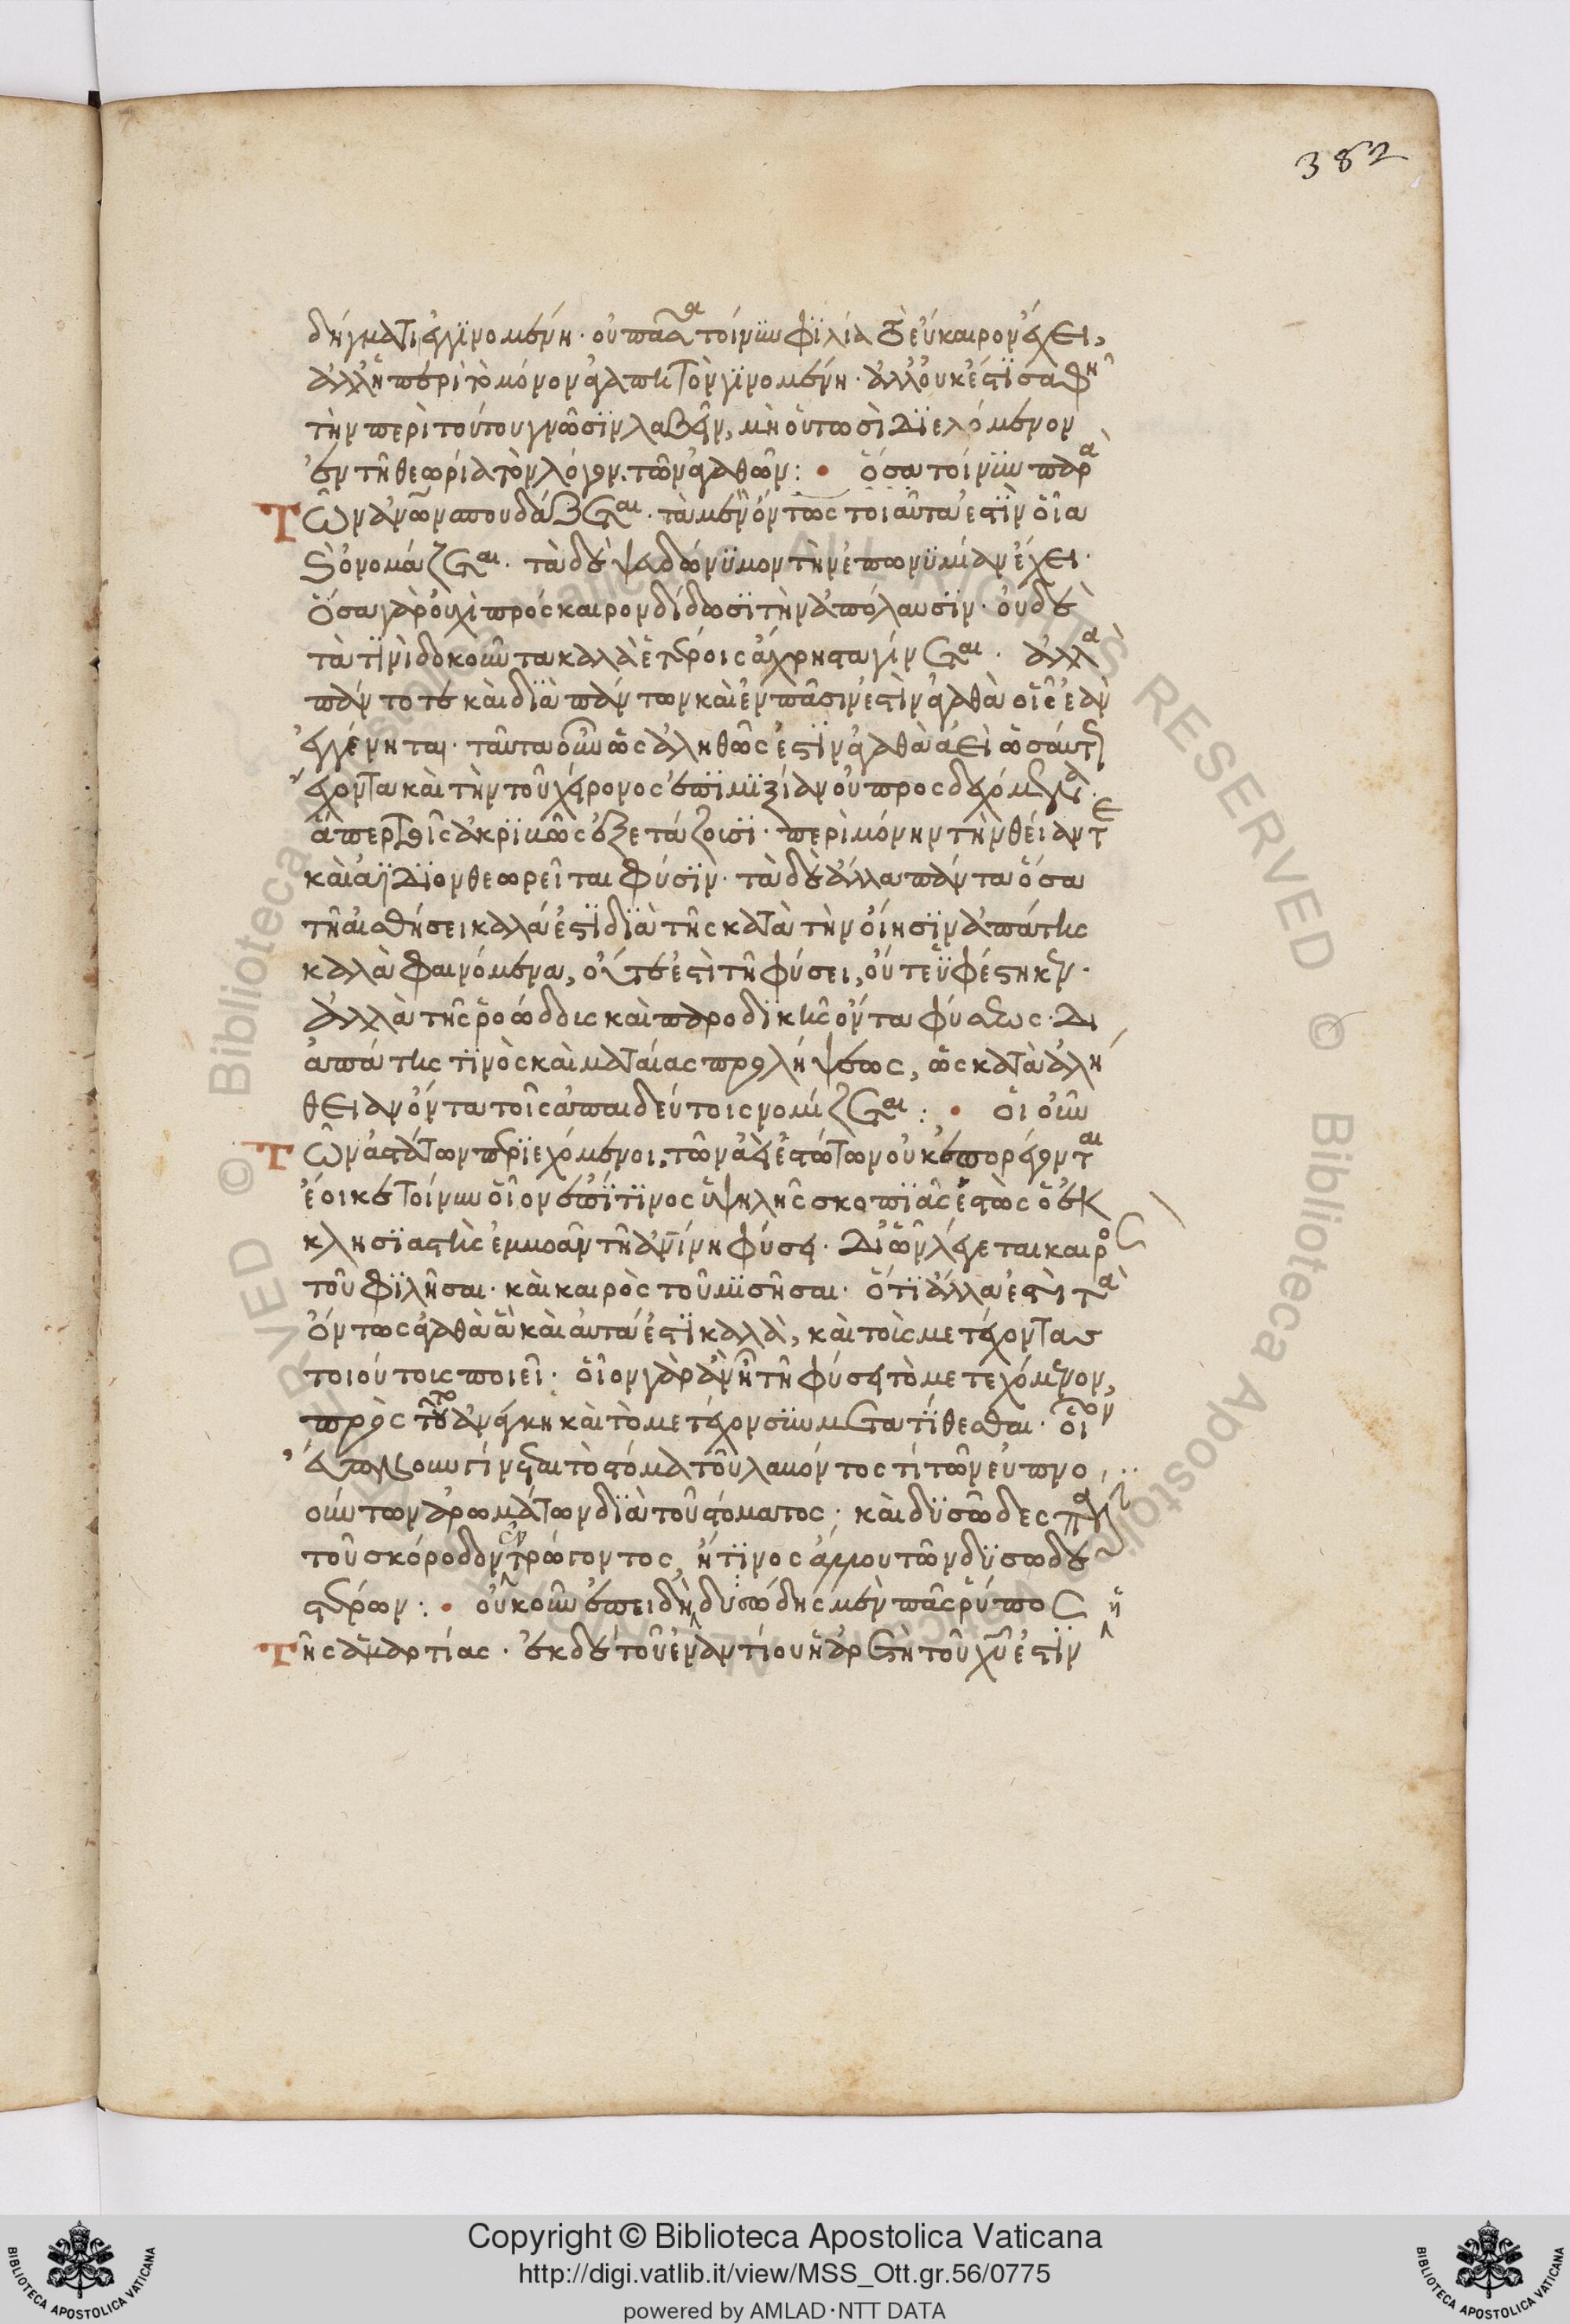 382
δήγματι ἐγγινομένη. οὐ πᾶσα τοίνυν φιλία τὸ εὔκαιρον ἔχει,
ἀλλ' ἢ περὶ τὸ μόνον ἀγαπητὸν γινομένη. ἀλλ' οὐκ ἔστι σαφῆ
τὴν περὶ τούτου γνῶσιν λαβεῖν, μὴ οὑτωσὶ διελόμενον
ἐν τῆ θεωρία τὸν λόγον τῶν ἀγαθῶν: • ὅσα τοίνυν παρὰ
Τῶν ἀνων σπουδάζεται. τὰ μὲν ὄντως τοιαῦτα ἐστὶν οἷα
ὀνομάζεται. τὰ δὲ ψευδώνυμον τὴν ἐπωνυμίαν ἔχει.
ὅσα γὰρ οὐχὶ πρὸς καιρον δίδωσι τὴν ἀπόλαυσιν. οὐδὲ
τὰ τινὶ δοκοῦντα καλὰ ἑτέροις ἄχρηστα γίνεται. ἀλλὰ
πάντοτε καὶ διὰ πάντων καὶ ἐν πᾶσιν ἐστὶν ἀγαθὰ οἷς ἐὰν
ἐγγένηται. ταῦτα οὖν ὡς ἀληθῶς ἐστὶν ἀγαθὰ ἀεὶ ὡσαύτως
ἔχοντα καὶ τὴν τοῦ χείρονος ἐπιμιξίαν οὐ προσδεχόμενα.
ἅπερ τοῖς ἀκριβῶς ἐξετάζουσι. περὶ μόνην τὴν θείαν τε
καὶ αΐδιον θεωρεῖται φύσιν. τὰ δὲ ἄλλα πάντα ὅσα
τῆ αἰσθήσει καλά ἐστι διὰ τῆς κατὰ τὴν οἴησιν ἀπάτης
καλὰ φαινόμενα, οὔτε ἐστὶ τῆ φύσει, οὔτε ὑφέστηκεν.
ἀλλὰ τῆς ῥοώδους καὶ παροδικῆς ὄντα φύσεως. δι
ἀπάτης τινὸς καὶ ματαίας προλήψεως, ὡς κατὰ ἀλή
θειαν ὄντα τοῖς ἀπαιδεύτοις νομίζεται: • οἱ οὖν
Τῶν ἀστάτων περιεχόμενοι, τῶν ἀεὶ ἑστώτων οὐκ ἐπορέγονται
ἔοικε τοίνυν οἷον ἐπί τινος ὑψηλῆς σκοπιᾶς ἑστὼς ὁ ἐκ
κλησιαστὴς ἐμβοᾶν τῆ ἀνίνη φύσει. δι' ὧν λέγεται καιρὸς
τοῦ φιλῆσαι. καὶ καιρὸς τοῦ μισῆσαι. ὅτι ἄλλα ἐστὶ τὰ
ὄντως ἀγαθὰ ἃ καὶ αὐτά ἐστι καλὰ, καὶ τοὺς μετέχοντας
τοιούτους ποιεῖ. οἷον γὰρ ἂν ἦ τῆ φύσει τὸ μετεχόμενον,
πρὸς τοῦτο ἀνάγκη καὶ τὸ μετέχον συμμετατίθεσθαι. οἷον
εὔπνουν γίνεται τὸ στόμα τοῦ λαβόντος τί τῶν εὐπνο
ούντων ἀρωμάτων διὰ τοῦ στόματος. καὶ δυσῶδες πάλιν
τοῦ σκόροδον ἐντρώγοντος, ἤ τινος ἄλλου τῶν δυσωδε
στέρων: • οὐκοῦν ἐπειδὴ δυσώδης μὲν πᾶς ῥύπος ἡ
Τῆς ἁμαρτίας. ἐκ δὲ τοῦ ἐναντίου ἡ ἀρετὴ τοῦ χυ ἐστὶν
Copyright © Biblioteca Apostolica Vaticana
http://digi.vatlib.it/view/MSS_Ott.gr.56/0775
powered by AMLAD·NTT DATA